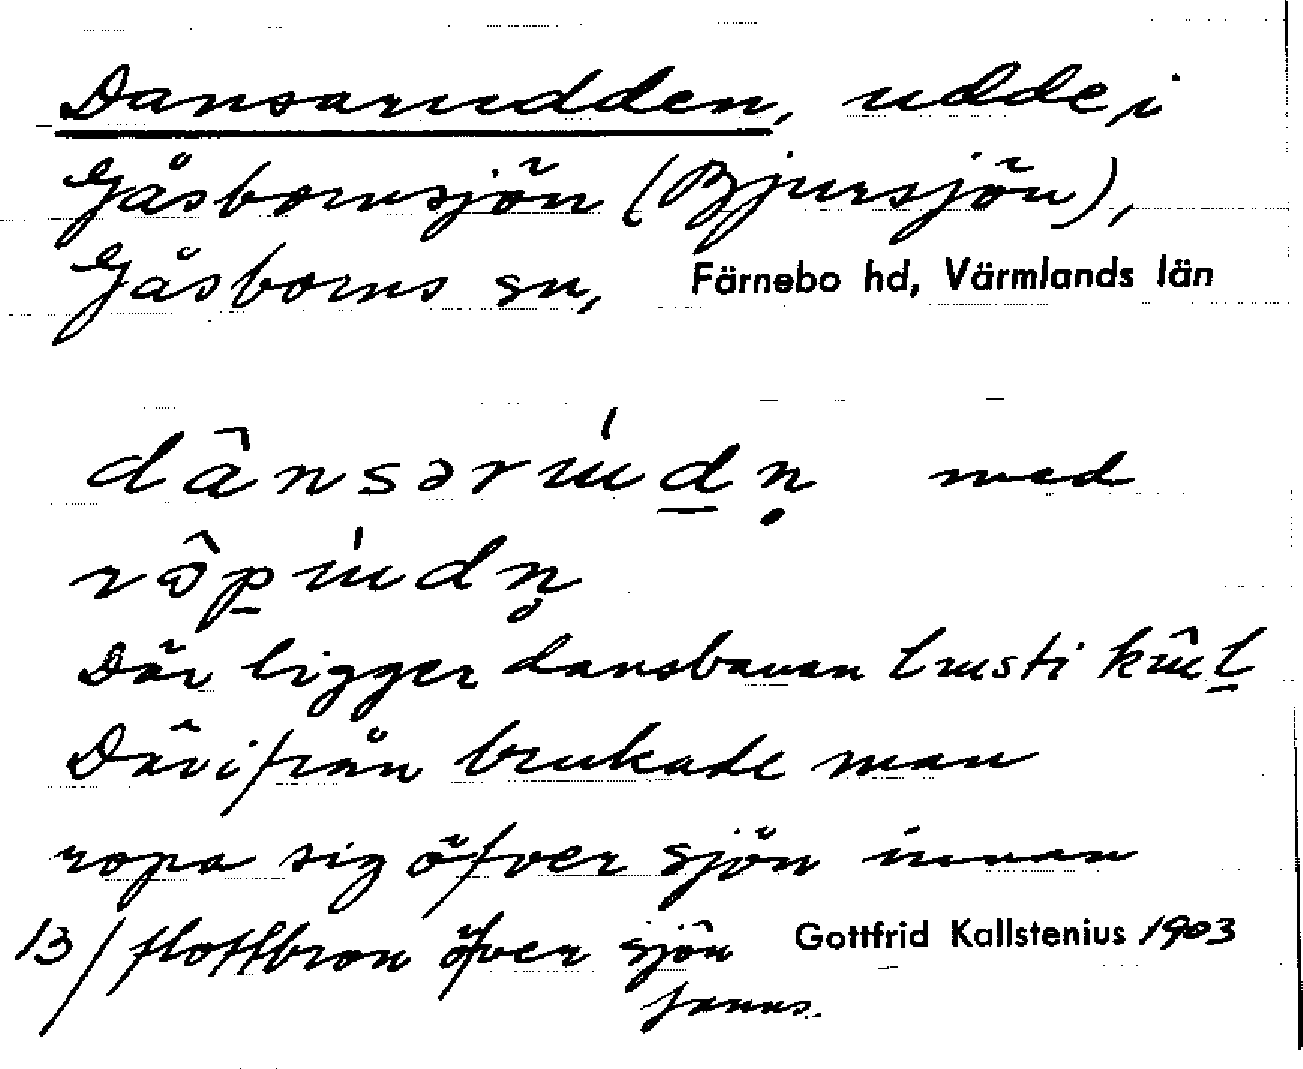 Dansarudden, udde i
Gåsbornsjön (Bjursjön),
Gåsborns sn, Färnebo hd, Värmlands län
dânsərúdn̥ med
rôpúdn̥
Där ligger dansbanan
Därifrån brukade man
ropa sig öfver sjön innan
13/ flottbron öfver sjön Gottfrid Kallstenius 1903
fanns.